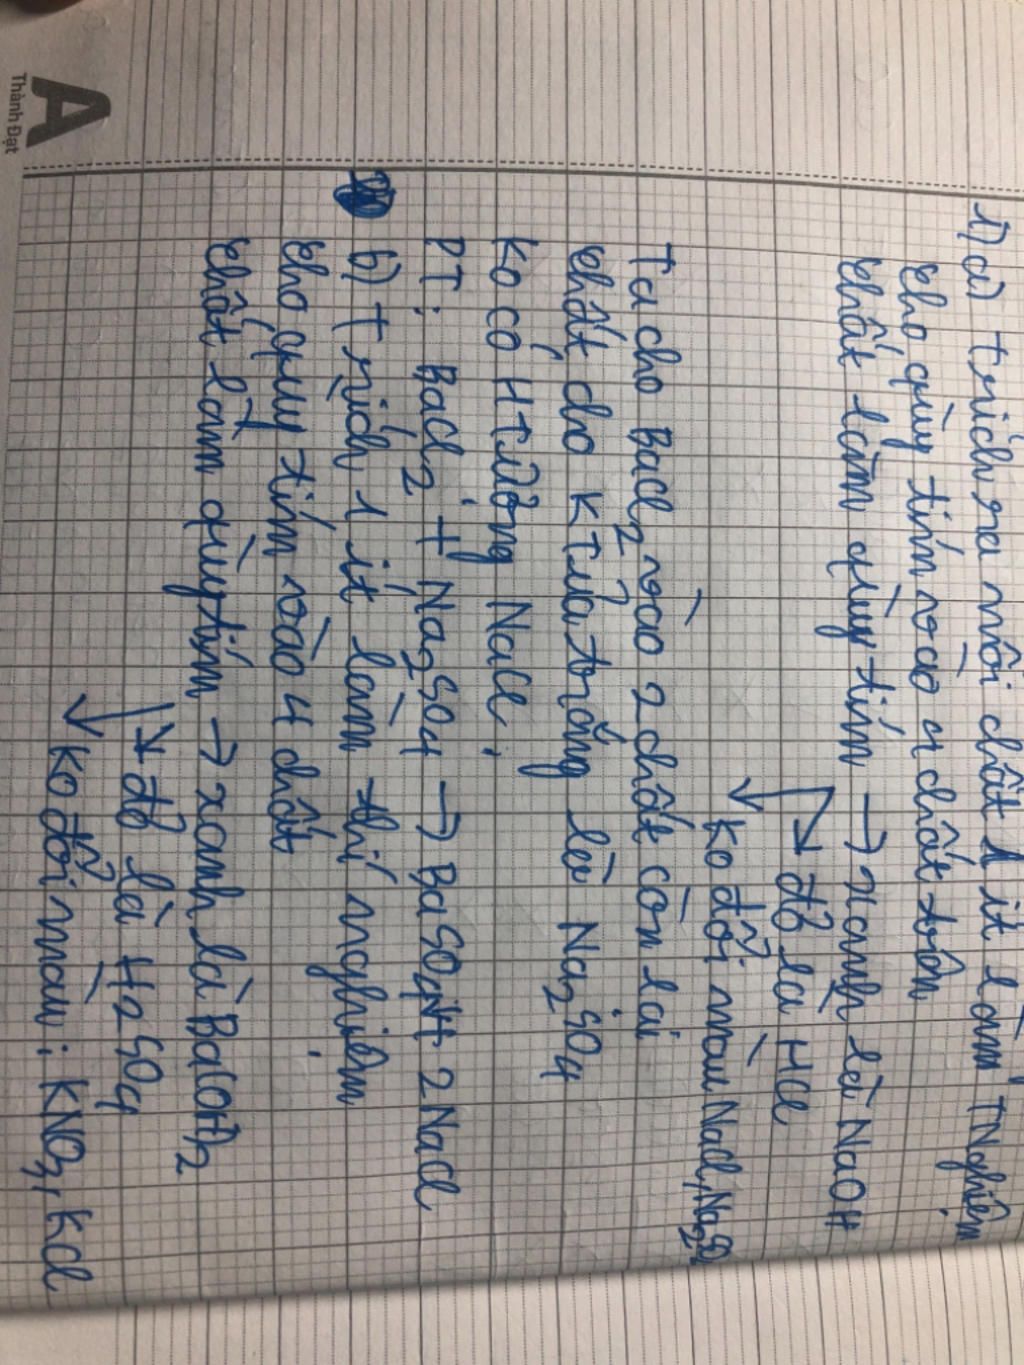 A
Thành Đạt
1) a) Trích ra mỗi chất 1 ít làm TNghiệm
Cho quỳ tím vào 4 chất trên
Chất làm quỳ tím → xanh là NaOH
→ đỏ là HCl
→ ko đổi màu NaCl, Na2SO4
Ta cho BaCl2 vào 2 chất còn lại
Chất cho Ktủa trắng là Na2SO4
Ko có Htượng NaCl
PT: BaCl2 + Na2SO4 → BaSO4↓ + 2NaCl
b) Trích 1 ít làm thí nghiệm
Cho quỳ tím vào 4 chất
Chất làm quỳ tím → xanh là Ba(OH)2
→ đỏ là H2SO4
→ ko đổi màu: KNO3, KCl